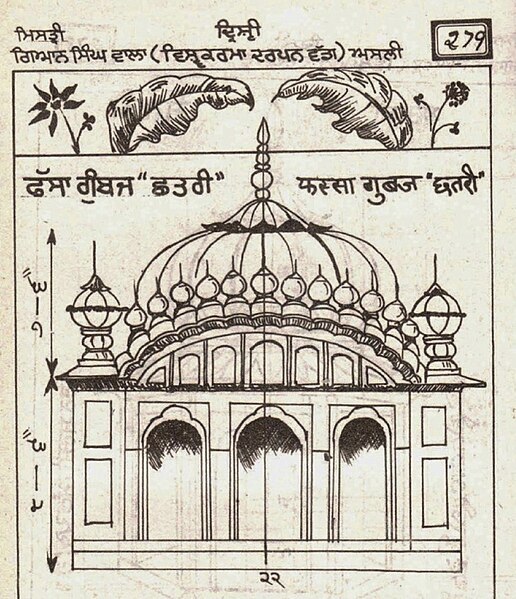 ਮਿਸਤ੍ਰੀ
ਗਿਆਨ ਸਿੰਘ ਵਾਲਾ ( ਵਿਸ਼੍ਵਕਰਮਾ ਦਰਪਨ ਵੱਡਾ ) ਅਸਲੀ
279
ਫੱਸਾ ਗੁੰਬਜ "ਛਤਰੀ"
फस्सा गुबज "छतरी"
੨੨